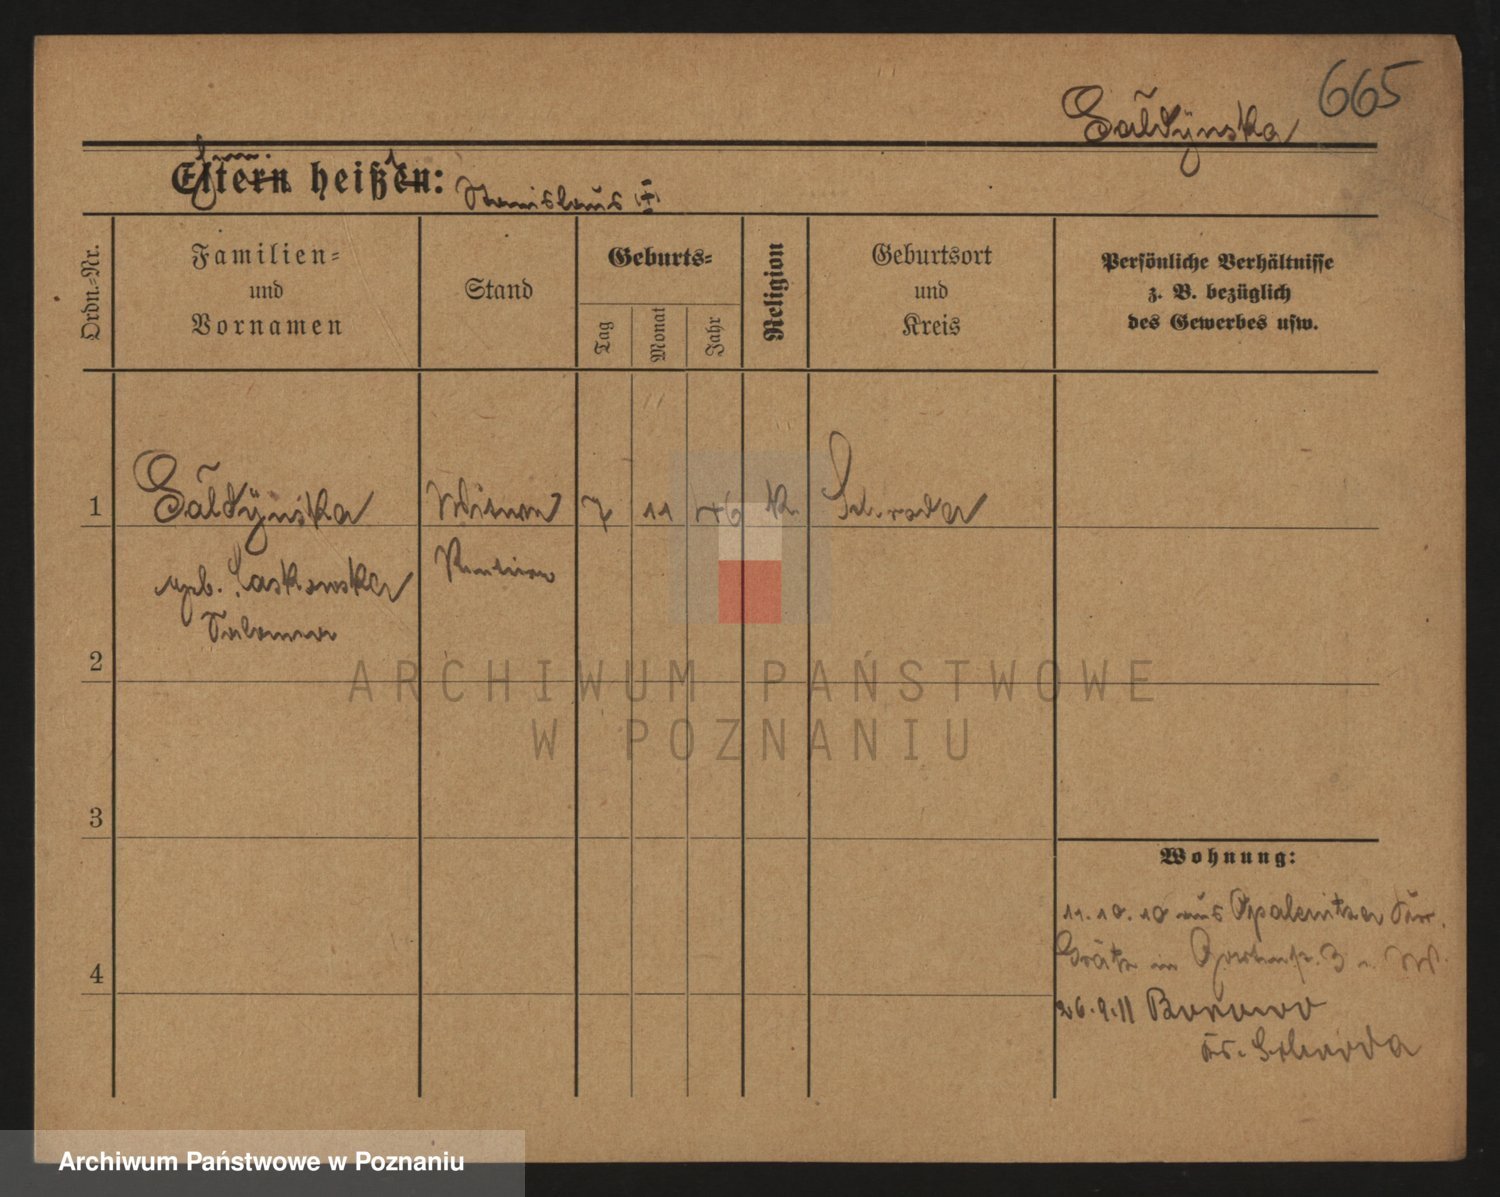 665
Saldÿnska
Eltern heißen: Stanislaus
Ordn.-Nr.
Familien-
und
Vornamen
Stand
Geburts-
Tag
Monat
Jahr
Religion
Geburtsort
und
Kreis
Persönliche Verhältnisse
z. B. bezüglich
des Gewerbes usw.
1 Saldÿnska Witwe 7 11 46 K. Schroda
geb. Laskowska
Salomea
2
ARCHIWUM PAŃSTWOWE
W POZNANIU
3
Wohnung:
11.10.10 aus Opalenitza
Grätz in 3
4
26.9.11 Borowo
Krs. Schroda
Archiwum Państwowe w Poznaniu